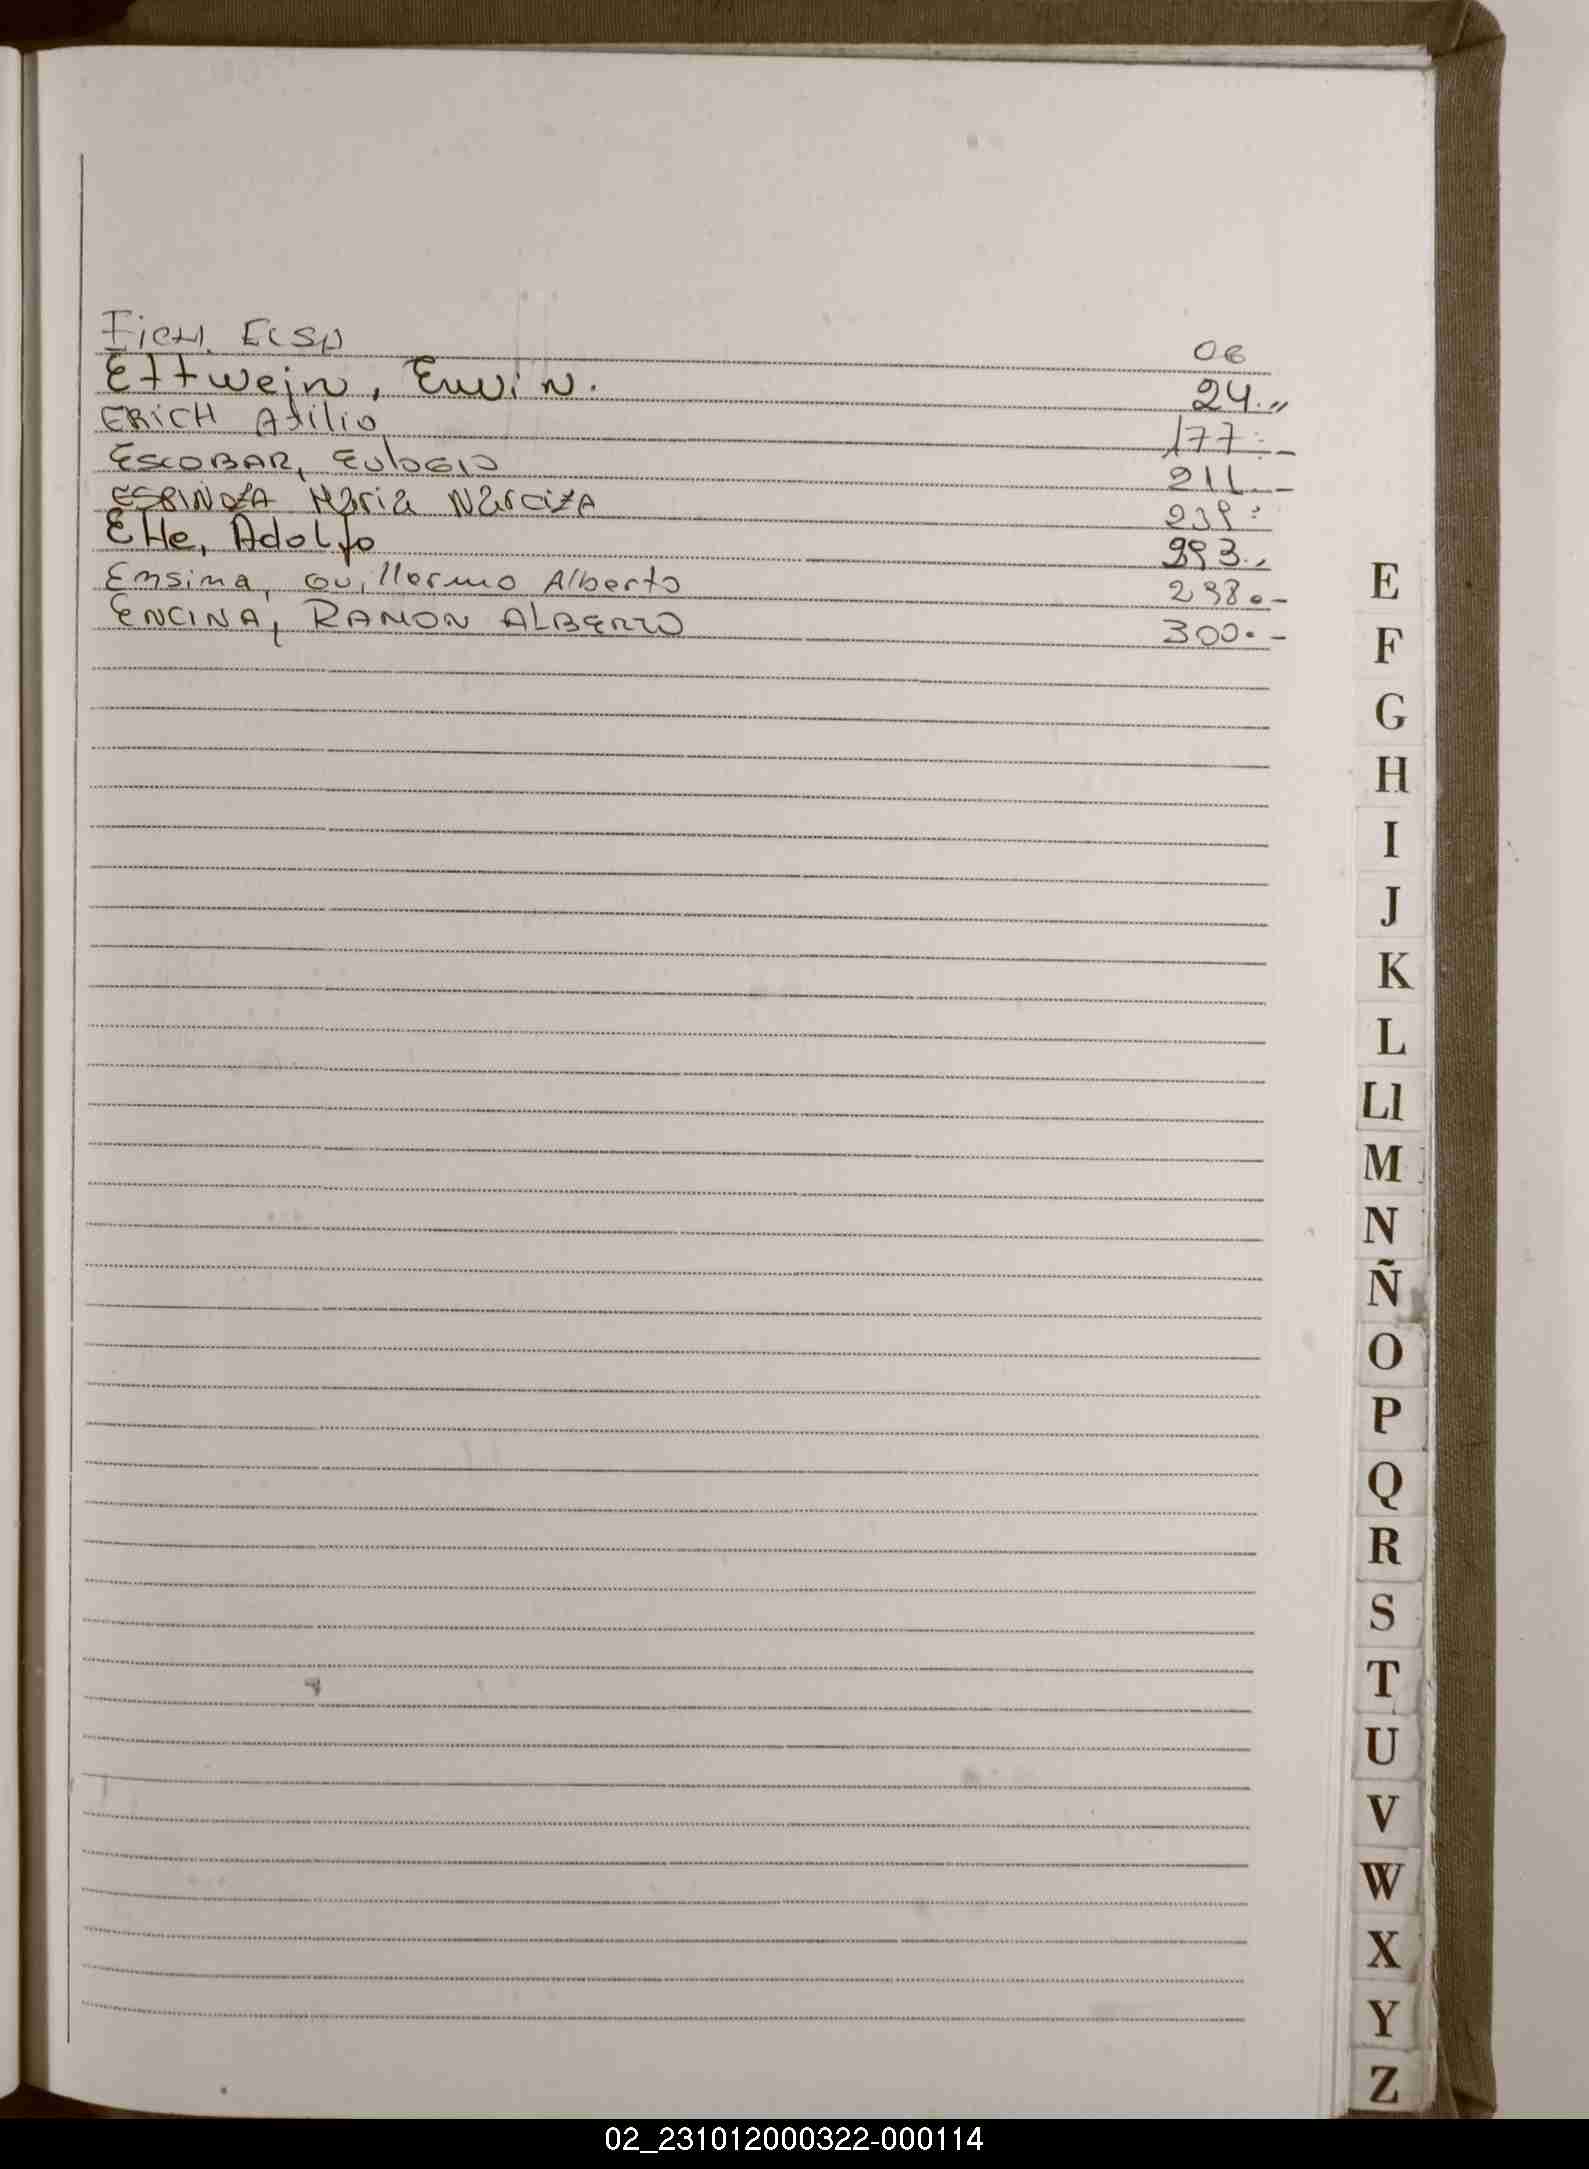 Eich, Elsa 06
Ettwein, Erwin. 24.,,
ERiCH Atilio 177.-
ESCOBAR, EulOGIO 211.-
ESPINOZA Maria NarcizA 239.
Ette, Adolfo 293.,
Ensina, Guillermo Alberto 298.-
ENCINA, RAMON ALBERTO 300.-
E
F
G
H
I
J
K
L
Ll
M
N
Ñ
O
P
Q
R
S
T
U
V
W
X
Y
Z
02_231012000322-000114